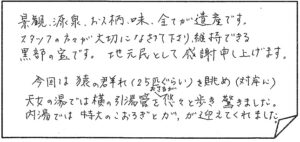 景観、源泉、お人柄、味、全てが遺産です。
スタッフの方々が大切になさて下さり、維持できる
黒部の宝です。地元民として感謝申し上げます。
今回は猿の群れ(25匹ぐらい)を眺め(対岸に)
天女の湯では横の引湯管をおさるが悠々と歩き驚きました。
内湯では特大のこおろぎとガ。が迎えてくれました